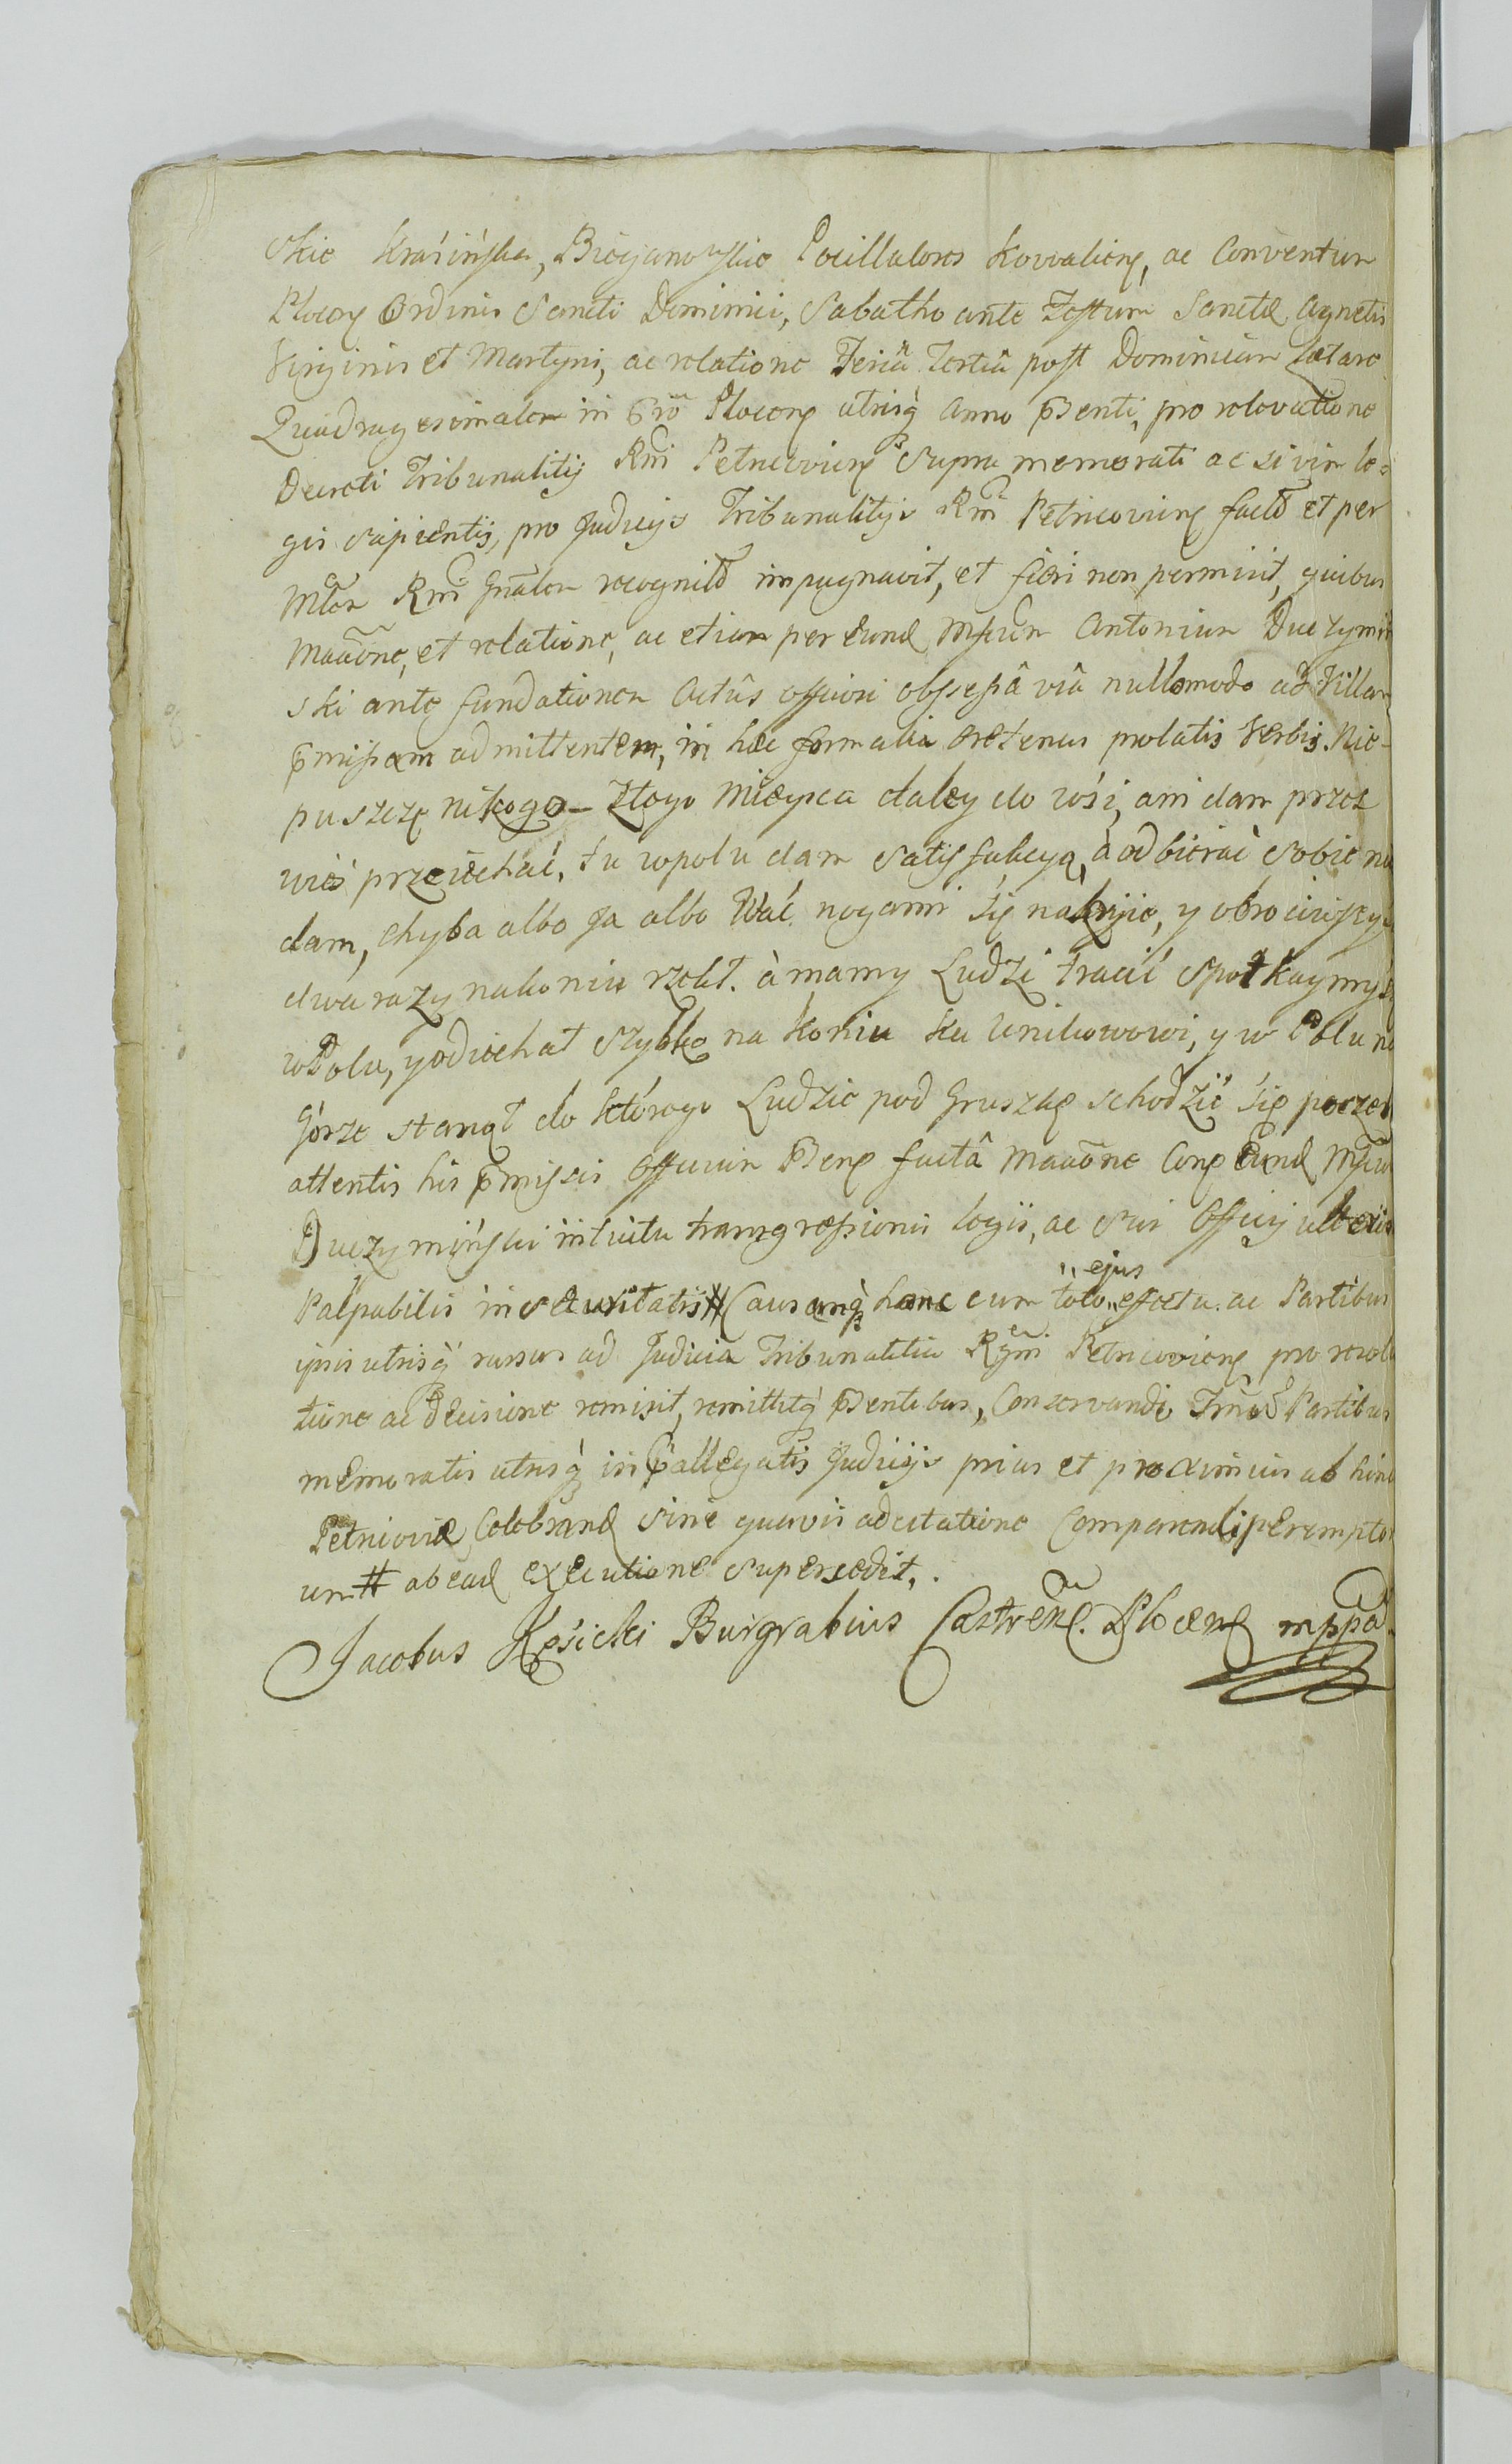 skie Krasińska, Bieganowskie Pocillatores Kovaliens, ac Conventum
Plocen Ordinis Sancti Dominici, Sabatho ante Festum Sanctæ Agnetis
Virginis et Martyris, ac relatione Feriâ Tertiâ post Dominicam Lætare
Quadragesimalem in Cstro Plocens utrisq anno psenti, pro relevatione
Decreti Tribunalitij Rni Petricoviens supra memorati ac si vim le=
gis sapientis, pro Judicijs Tribunalitijs Rni Petricoviens facto et per
Mlem Rni Gnalem recognito impugnavit, et fieri non permisit, quibus
Maõne, et relatione, ac etiam per eund Mfcum Antonium Duczymiń
ski ante fundationem Actûs officiosi obsessâ viâ nullomodo ad Villam
pmissam admittentem, in hæc formalia oretenus prolatis Verbis. Nie-
puszczę nikogo Ztego Mieysca daley do wśi, ani dam przez
wieś przeiechać, tu wpolu dam satisfakcyą, à odbierać sobie nie
dam, chyba albo Ja albo Wać nogami się nakryie, y obrociwszy
dwa razy nakoniu rzekł. à mamy Ludzi tracić spotkaymy się
wPolu, yodiechał szybko na koniu ku Unikowowi, y w Polu na
Górze stanął do którego Ludzie pod Gruszkę schodzić się poczeli
attentis his pmissis Officium psens factâ Maõne Cons Eund Mfcum
Duczymiński intuitu transgressionis legis, ac sui Officij
Palpabilis insecuritatis # Causamq hanc cum toto " ejus effectu. ac Partibus
ipsis utrisq rursus ad Judicia Tribunalitia Rgni Petricoviens pro resolu
tione ac decisione remisit, remittitq psentibus, Conservandi Partibus
memoratis utrisq in pallegatis Judicijs prius et proximius ab hinc
Petricoviæ Celebrand sine quavis adcitatione Comparendi peremptori
um # ab ead executione supersedit.
Jacobus Kosicki Burgrabius Castrens. Plocens mppa